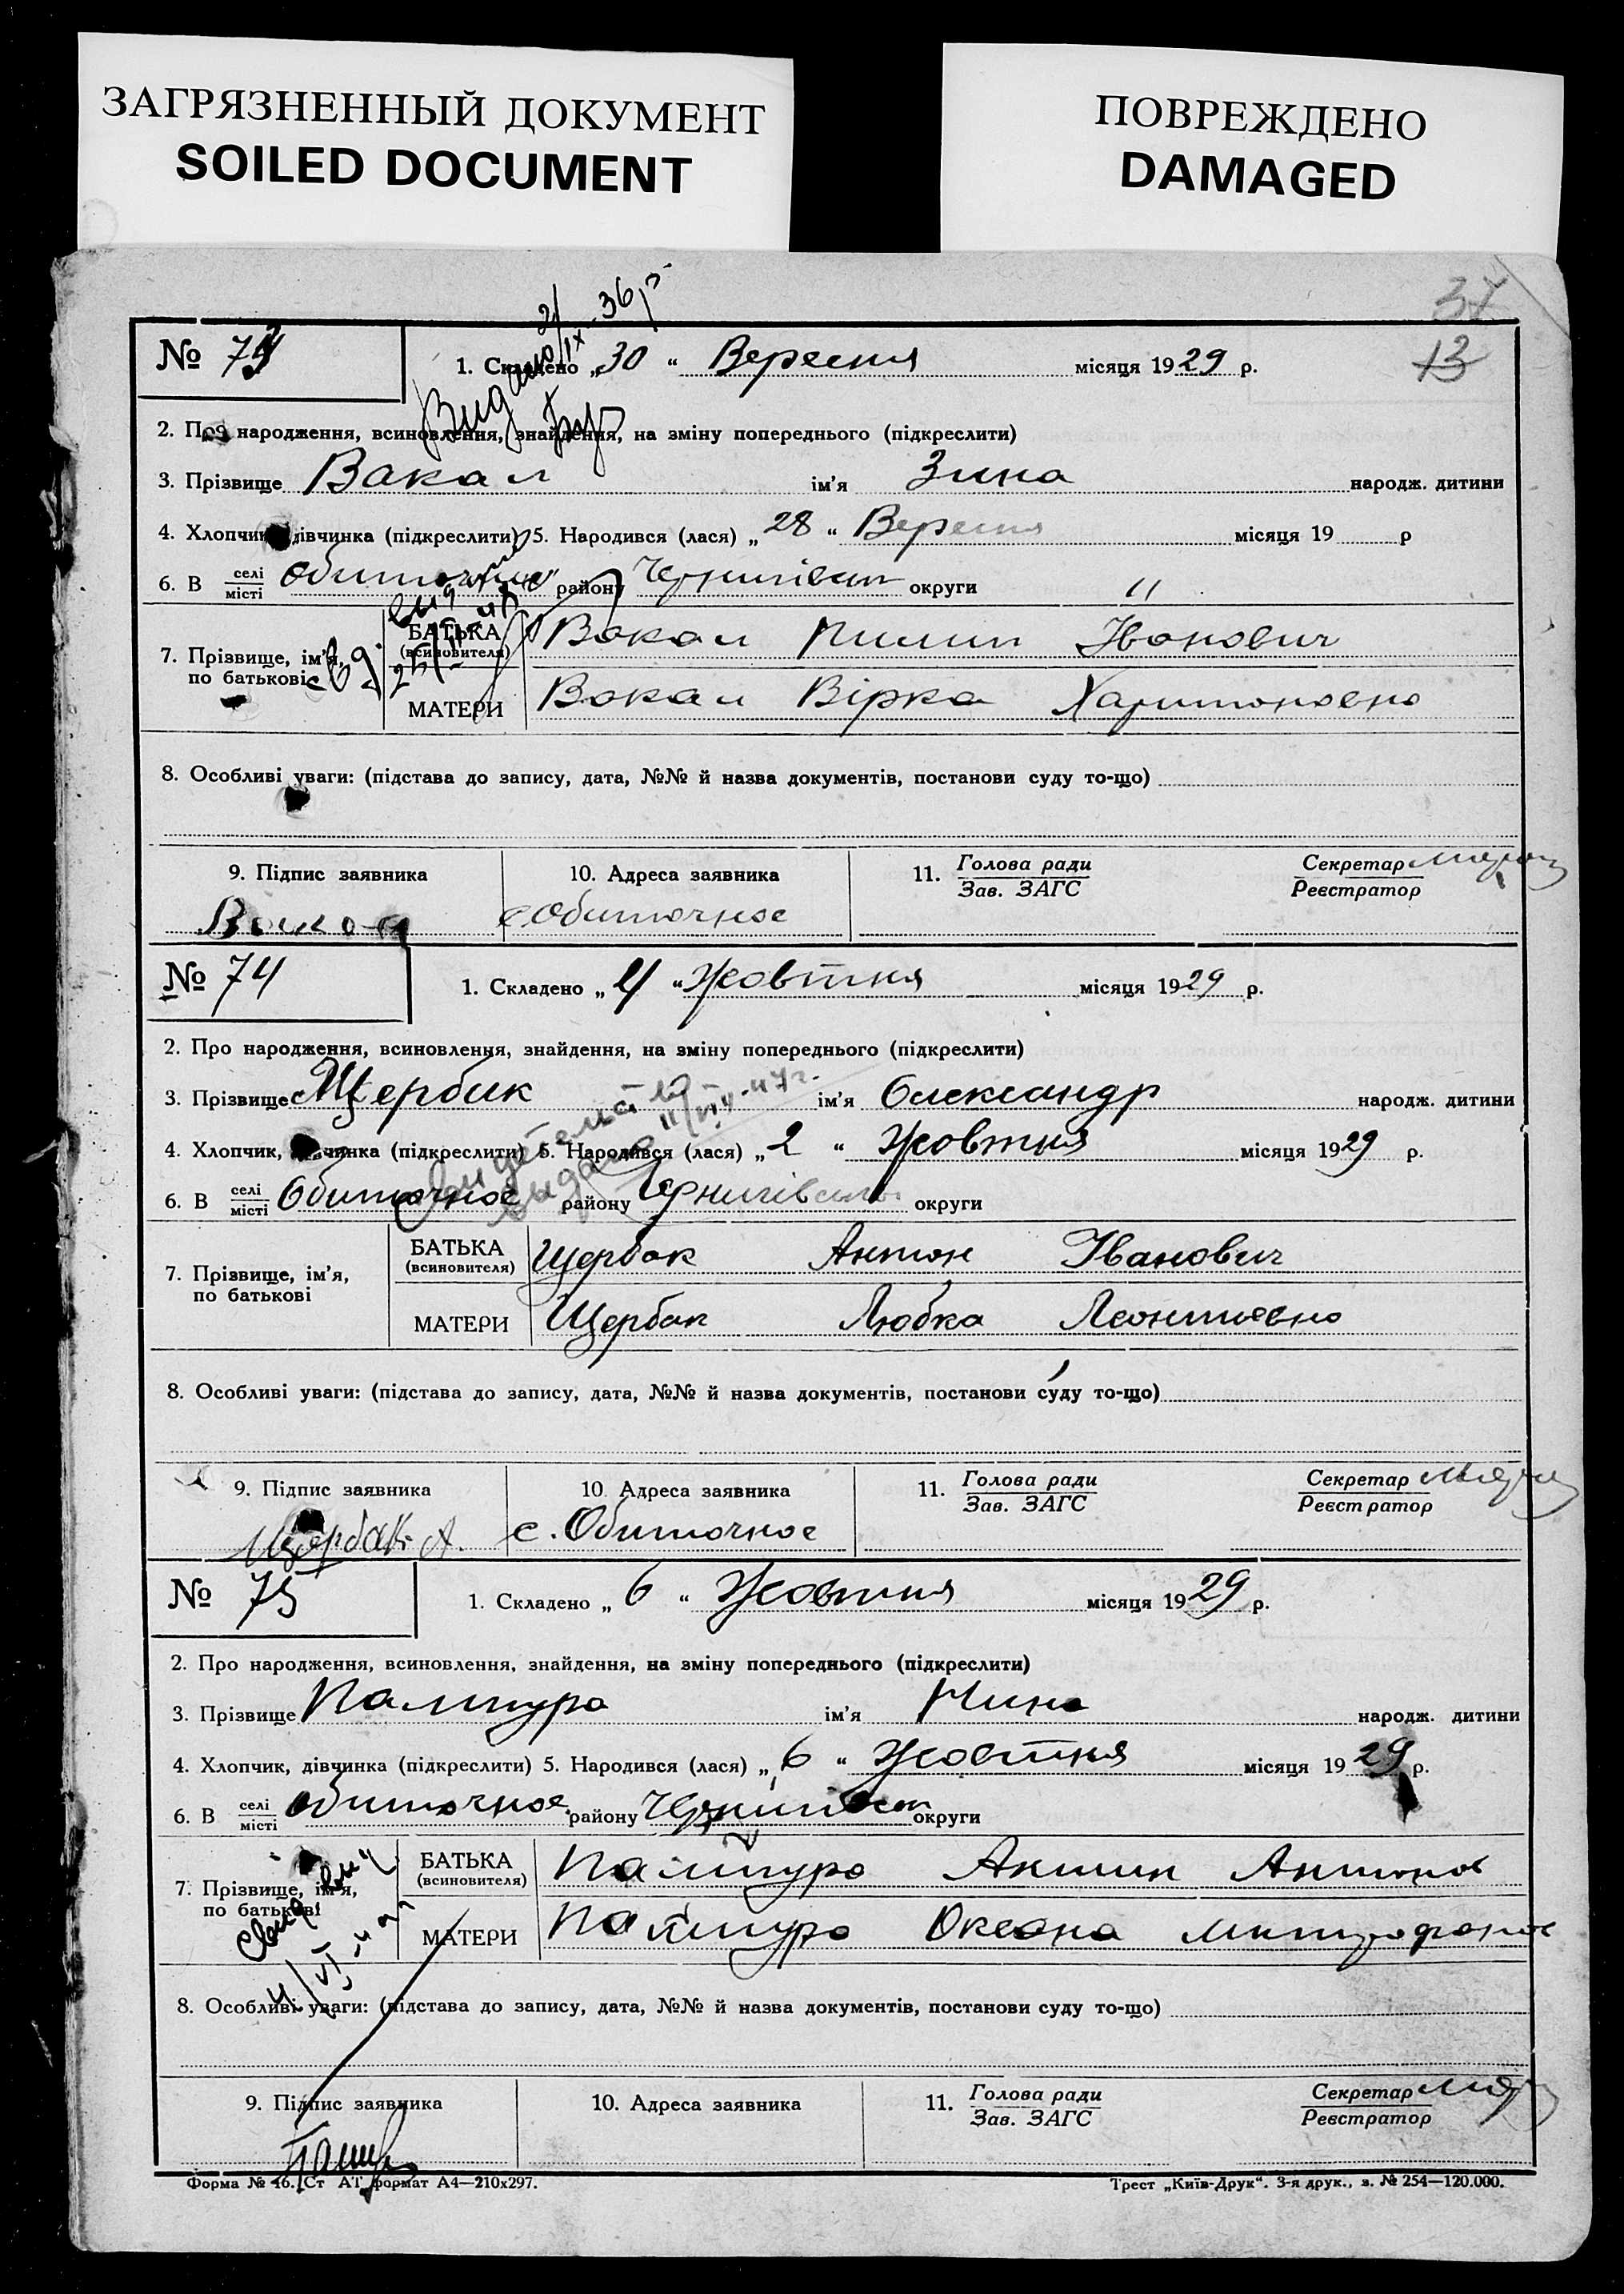 ЗАГРЯЗНЕННЫЙ ДОКУМЕНТ
SOILED DOCUMENT
ПОВРЕЖДЕНО
DAMAGED
37
13
Видано 2/IX-36 р
№ 73
1. Складено „30“ Вересня місяця 1929 р.
2. Про народження, всиновлення, знайдення, на зміну попереднього (підкреслити)
3. Прізвище Вакал ім'я Зина народж. дитини
4. Хлопчик, дівчинка (підкреслити) 5. Народився (лася) „28“ Вересня місяця 19 р
6. В селі місті Обиточное району Чернигівськ округи "
7. Прізвище, ім'я, по батькові
БАТЬКА (всиновителя) Вакал Пилип Іванович
МАТЕРИ Вакал Вірка Харитоновна
8. Особливі уваги: (підстава до запису, дата, №№ й назва документів, постанови суду то-що)
9. Підпис заявника
10. Адреса заявника
11. Голова ради Зав. ЗАГС
Секретар Реєстратор
с. Обиточное
№ 74
1. Складено „4“ Жовтня місяця 1929 р.
2. Про народження, всиновлення, знайдення, на зміну попереднього (підкреслити)
3. Прізвище Щербак ім'я Олександр народж. дитини
Свидетельство
выдано 11/VII-47 г.
4. Хлопчик, дівчинка (підкреслити) 5. Народився (лася) „2“ Жовтня місяця 1929 р.
6. В селі місті Обиточное району Чернигівськ округи
7. Прізвище, ім'я, по батькові
БАТЬКА (всиновителя) Щербак Антон Іванович
МАТЕРИ Щербак Любка Леонтьевна
8. Особливі уваги: (підстава до запису, дата, №№ й назва документів, постанови суду то-що)
9. Підпис заявника
10. Адреса заявника
11. Голова ради Зав. ЗАГС
Секретар Реєстратор
Щербак А.
с. Обиточное
№ 75
1. Складено „6“ Жовтня місяця 1929 р.
2. Про народження, всиновлення, знайдення, на зміну попереднього (підкреслити)
3. Прізвище Палтура ім'я Нина народж. дитини
4. Хлопчик, дівчинка (підкреслити) 5. Народився (лася) „6“ Жовтня місяця 1929 р.
6. В селі місті Обиточное району Чернигівськ округи
7. Прізвище, ім'я, по батькові
БАТЬКА (всиновителя) Палтура Аким Антонов
МАТЕРИ Палтура Оксана Митрофанов
8. Особливі уваги: (підстава до запису, дата, №№ й назва документів, постанови суду то-що)
9. Підпис заявника
10. Адреса заявника
11. Голова ради Зав. ЗАГС
Секретар Реєстратор
Форма № 46. Ст АТ формат А4—210х297.
Трест „Київ-Друк“. 3-я друк., з. № 254—120.000.